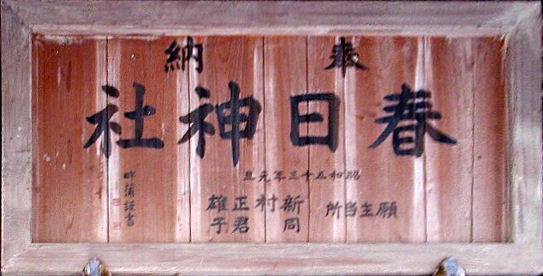 奉納
春日神社
昭和五十三年元旦
願主当所
新村正雄
同君子
謹書